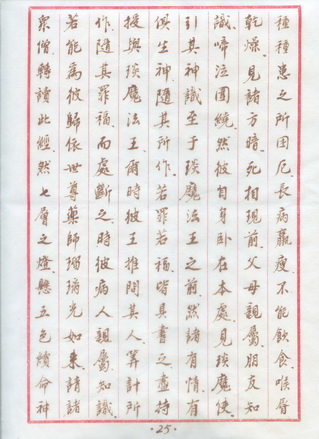 種種患之所困厄長病羸瘦不能飲食喉脣
乾燥見諸方暗死相現前父母親屬朋友知
識啼泣圍繞然彼自身臥在本處見琰魔使
引其神識至于琰魔法王之前然諸有情有
俱生神隨其所作若罪若福皆具書之盡持
授與琰魔法王爾時彼王推問其人算計所
作隨其罪福而處斷之時彼病人親屬知識
若能為彼歸依世尊藥師瑠璃光如來請諸
眾僧轉讀此經然七層之燈懸五色續命神
·25·